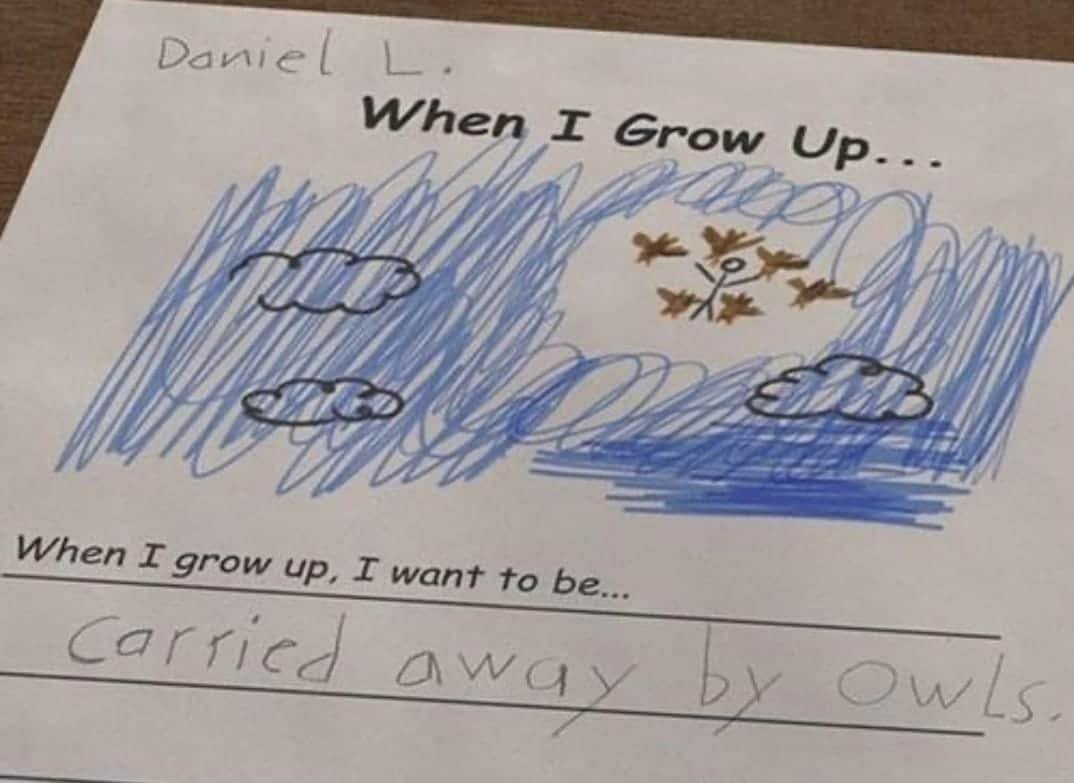 Daniel L.
When I Grow Up...
When I grow up, I want to be...
carried away by owls.